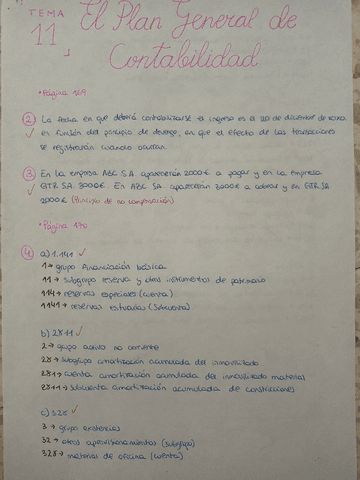 TEMA
11
El Plan General de
Contabilidad
• Página 169
2 La fecha en que deberá contabilizarse el ingreso es el 20 de diciembre de
en función del principio de devengo, en que el efecto de las transacciones
se registrarán cuando ocurran.
3 En la empresa ABC S.A. aparecerán 2000€ a pagar y en la empresa
GTR SA. 3000€. En ABC SA. aparecerán 3000€ a cobrar y en GTR SA.
2000€ (Principio de no compensación)
• Página 170
4 a) 1.141 ✓
1 → grupo financiación básica
11 → subgrupo reserva y otros instrumentos de patrimonio
114 → reservas especiales (cuenta)
1141 → reservas estatuarias (subcuenta)
b) 2811 ✓
2 → grupo activo no corriente
28 → subgrupo amortización acumulada del inmovilizado
281 → cuenta amortización acumulada del inmovilizado material
2811 → subcuenta amortización acumulada de construcciones
c) 328 ✓
3 → grupo existencias
32 → otros aprovisionamientos (subgrupo)
328 → material de oficina (cuenta)